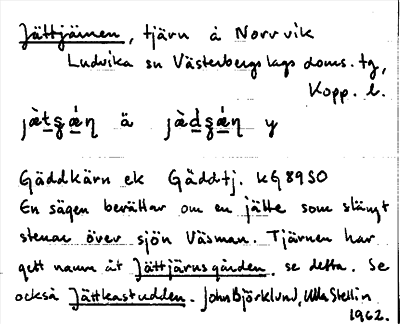 Jättjärnen, tjärn å Norrvik
Ludvika sn Västerbergslags doms. tg,
Kopp. l.
ä
y
Gäddkärn ek Gäddtj. KG 89 SO
En sägen berättar om en jätte som slängt
stenar över sjön Väsman. Tjärnen har
gett namn åt Jättjärnsgården, se detta. Se
också Jättkastudden. John Björklund, Ulla Stellin
1962.